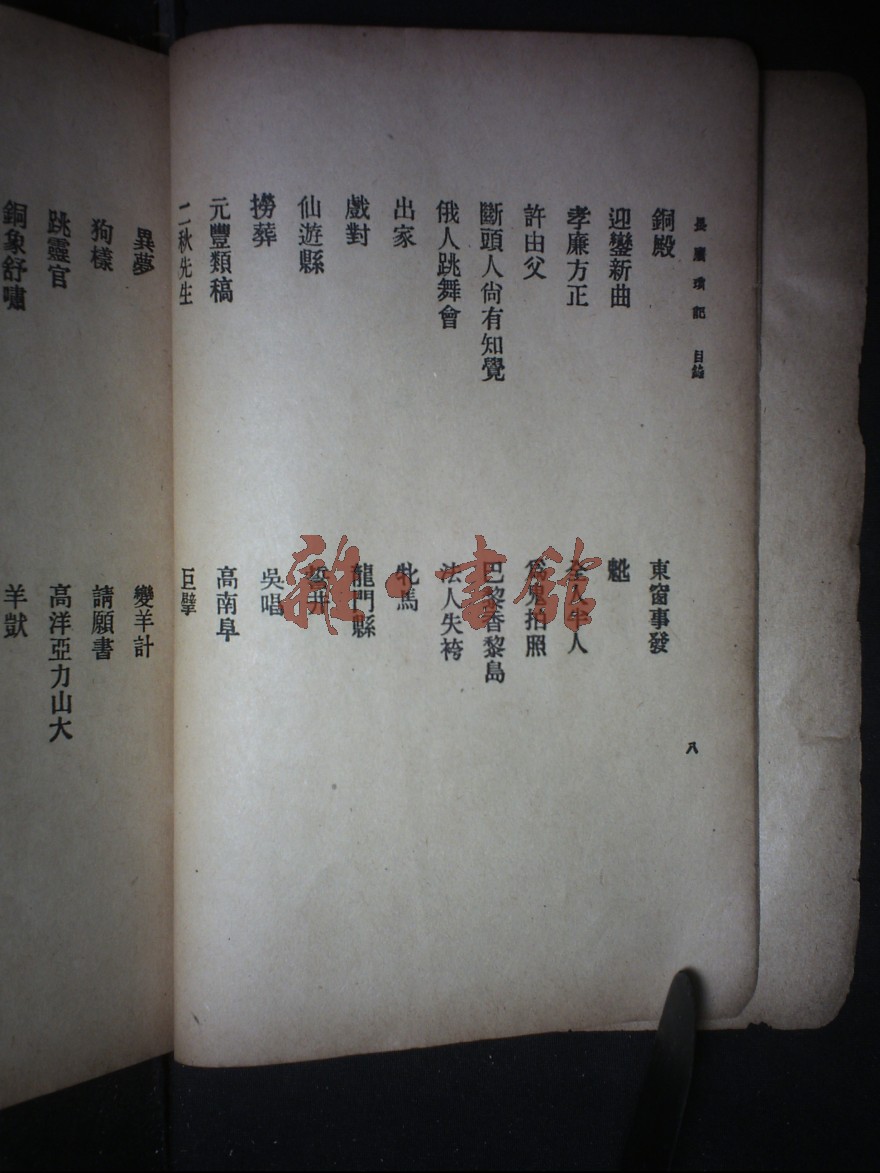 長廣瑣記 目錄
八
銅殿
東窗事發
迎鑾新曲
魮
孝廉方正
全人半人
許由父
為鬼拍照
斷頭人尙有知覺
巴黎香黎島
俄人跳舞會
法人失袴
出家
牝馬
戲對
龍門縣
仙遊縣
撈葬
吳唱
元豐類稿
高南阜
二秋先生
巨擘
異夢
變羊計
狗樣
請願書
跳靈官
高洋亞力山大
銅象舒嘯
羊獃
雜·書館